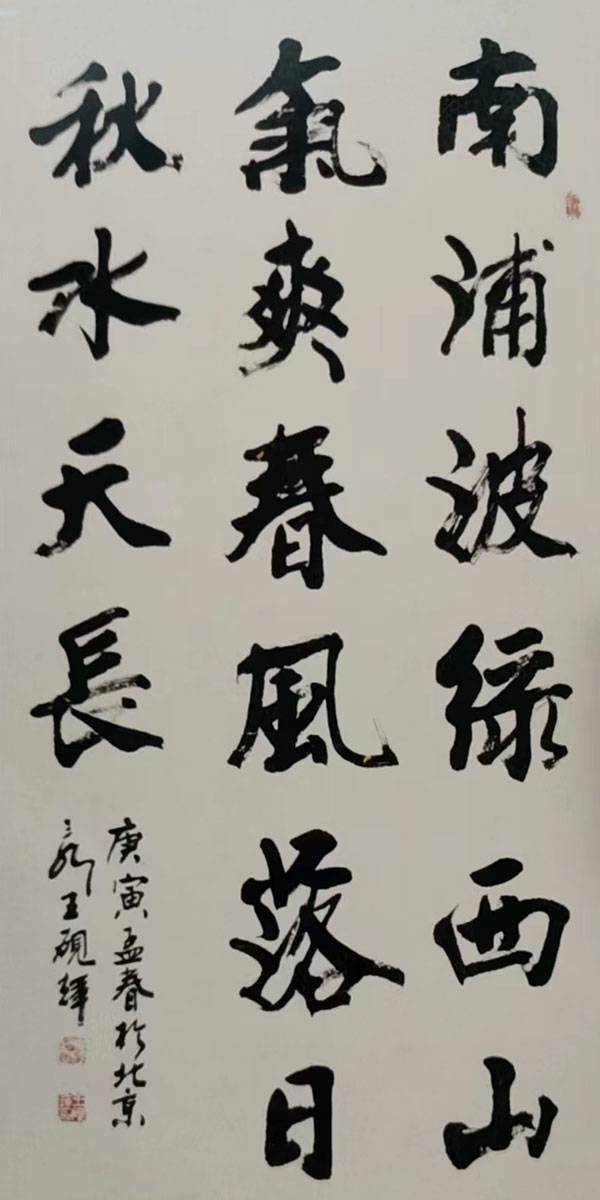 南浦波緑西山
氣爽春風落日
秋水天長
庚寅孟春於北京
王砚輝